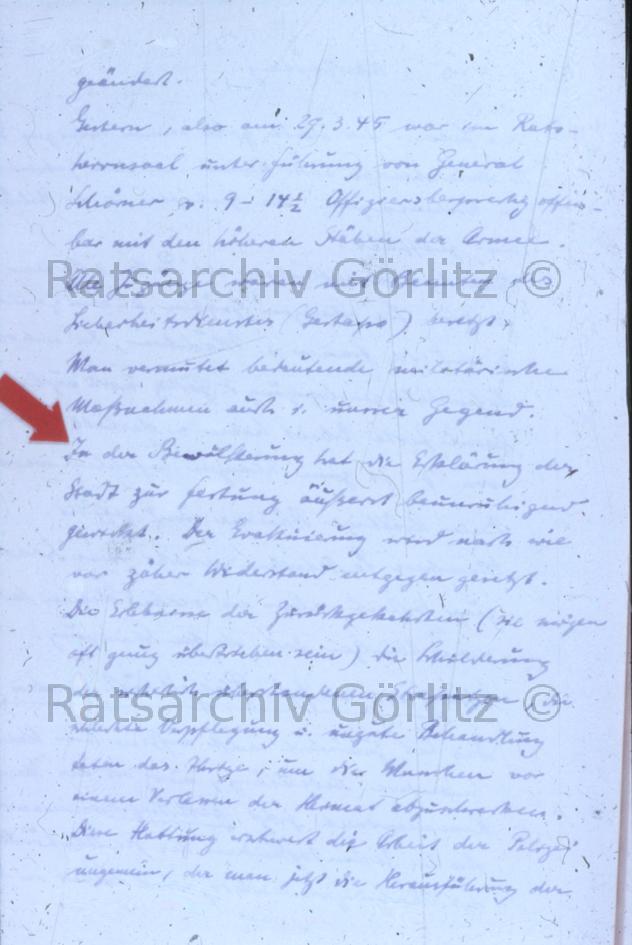 geändert.
Gestern, also am 29.3.45 war im Rats-
herrnsaal unter Führung von General
Schörner v. 9 - 14½ Offiziersbesprechg offen-
bar mit den höheren Stäben der Armee.
Alle Zugänge waren mit Beamten des
Sicherheitsdienstes (Gestapo) besetzt.
Ratsarchiv Görlitz ©
Man vermutet bedeutende militärische
Maßnahmen auch i. unserer Gegend.
In der Bevölkerung hat die Erklärung der
Stadt zur Festung äußerst beunruhigend
gewirkt. Der Evakuierung wird nach wie
vor zäher Widerstand entgegen gesetzt.
Die Erlebnisse der Zurückgekehrten (sie mögen
oft genug übertrieben sein) die Schilderung
der überstandenen Strapazen, die
Ratsarchiv Görlitz ©
schlechte Verpflegung u. ungute Behandlung
taten das Übrige, um die Menschen vor
einem Verlassen der Heimat abzuschrecken.
Diese Haltung erschwert die Arbeit der Polizei
ungemein, der man jetzt die Herausführung der